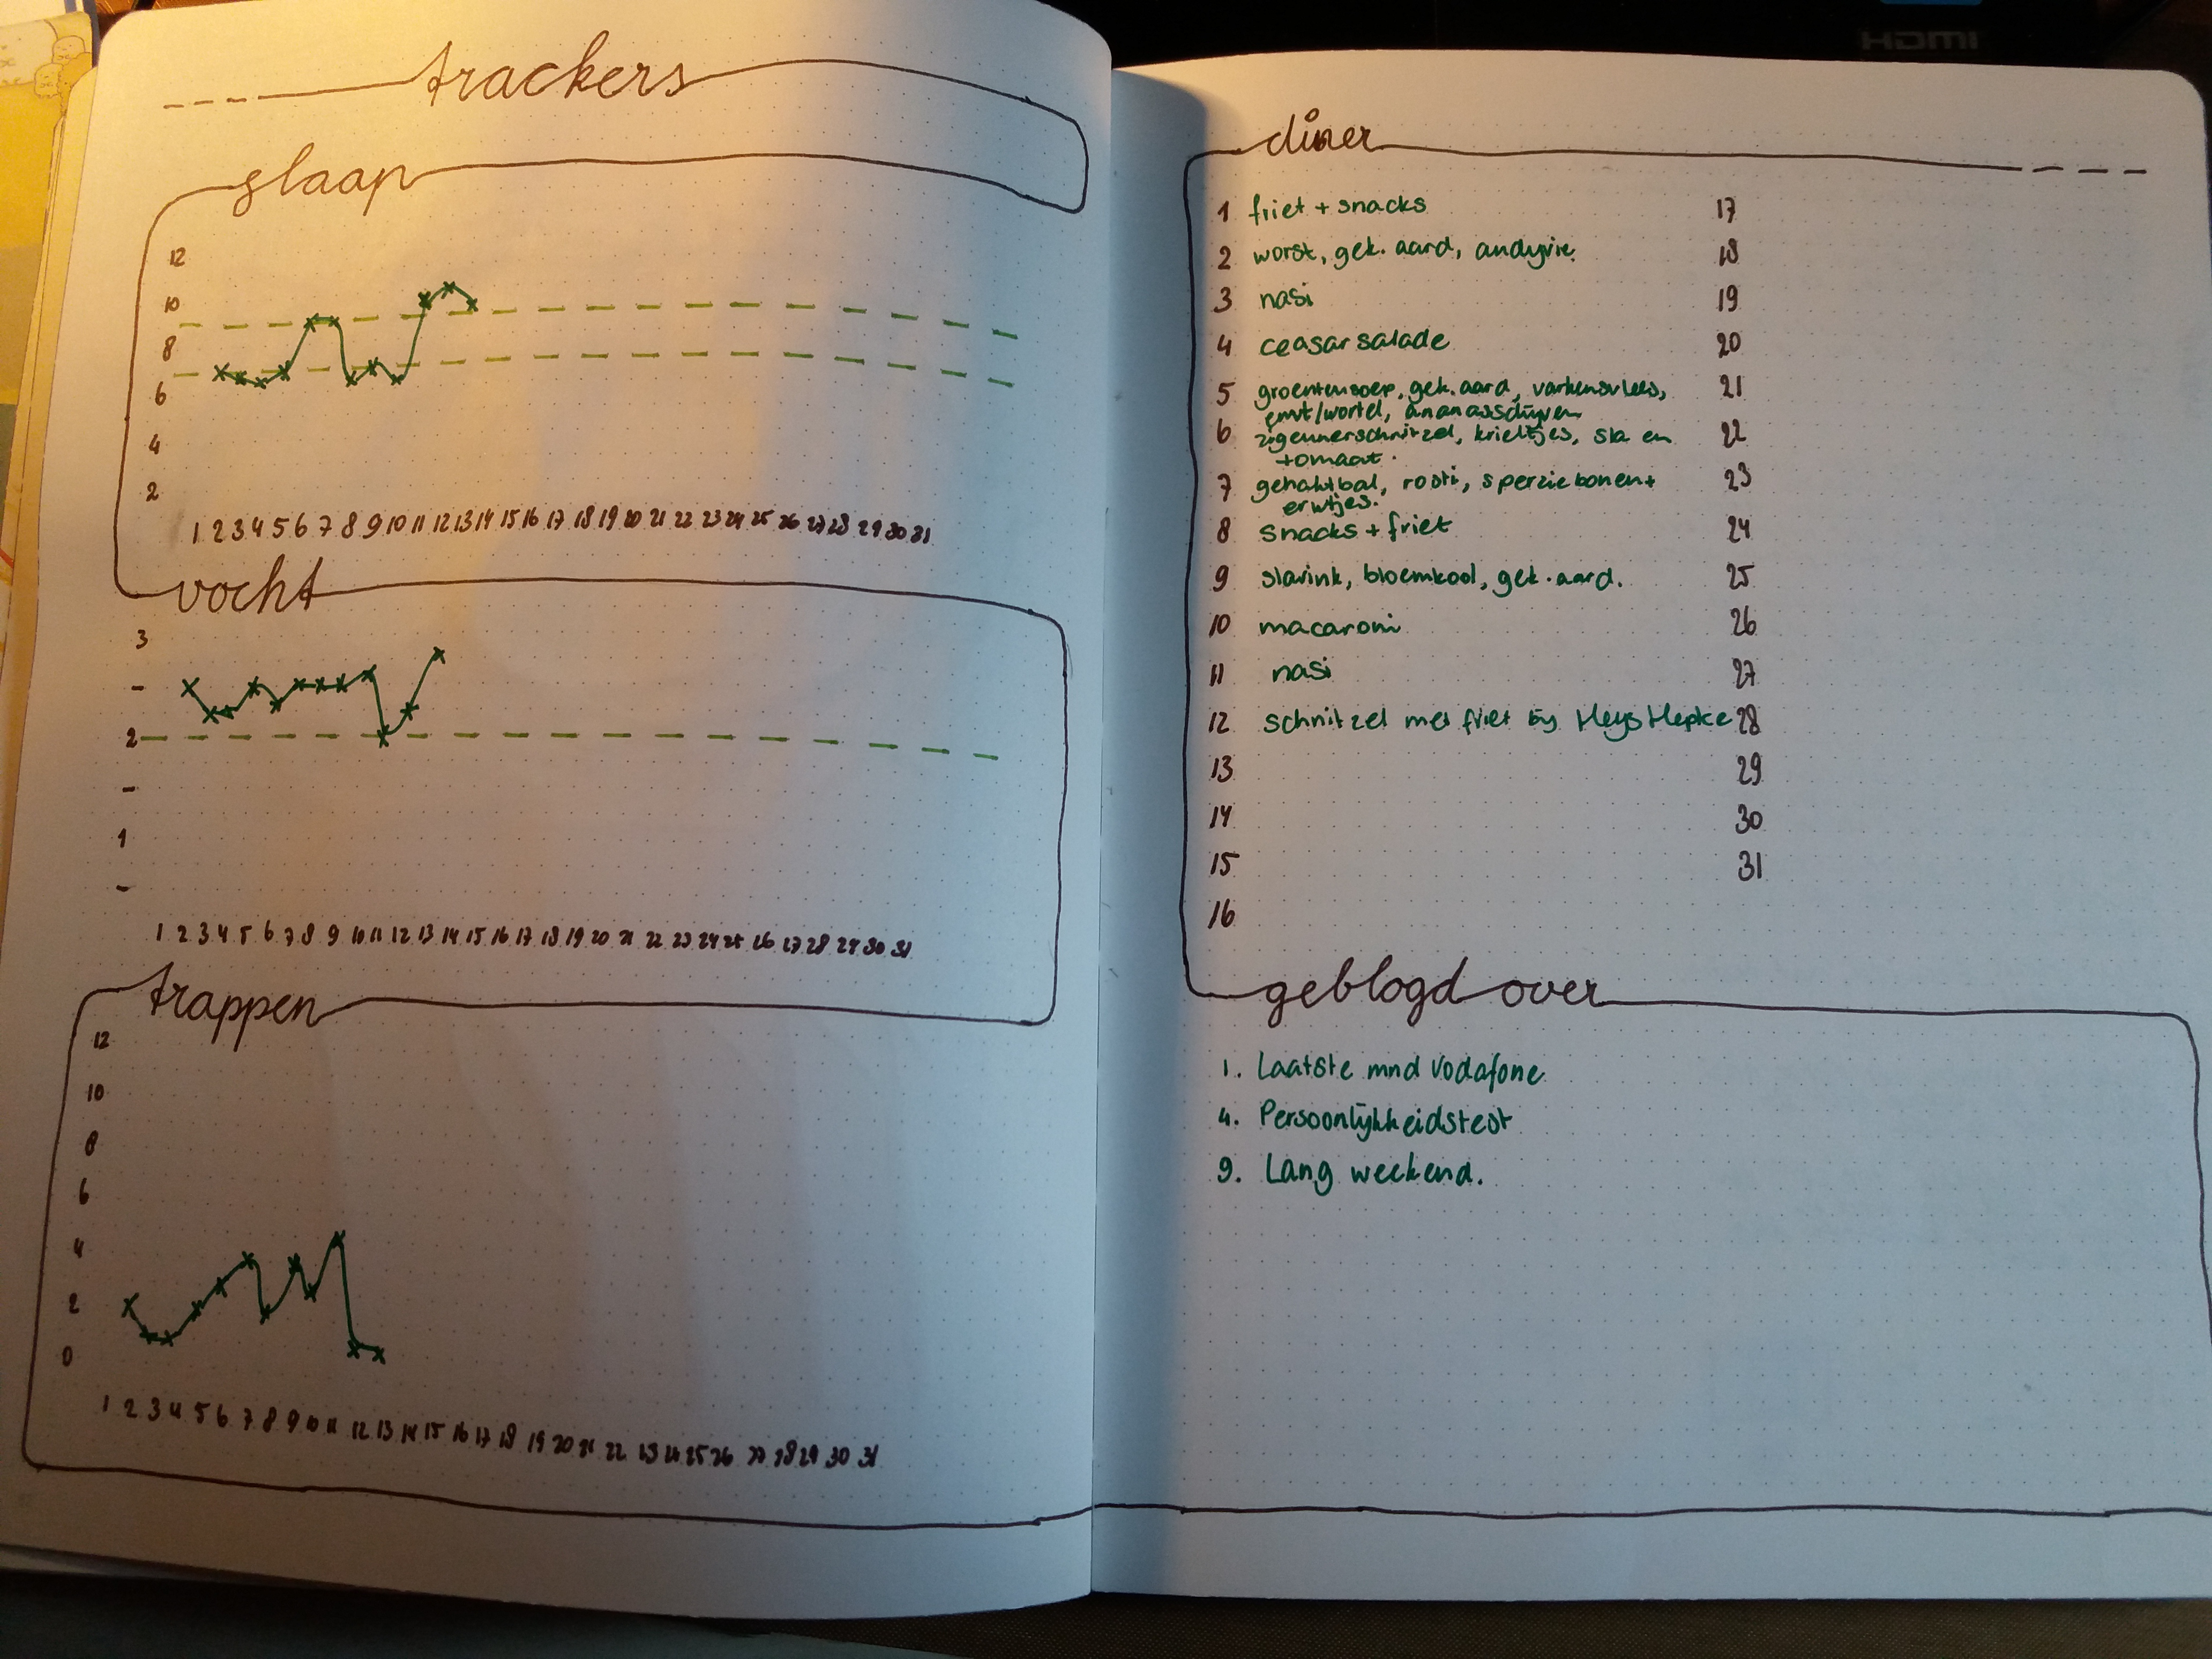 HDMI
trackers
slaap
12
10
8
6
4
2
1 2 3 4 5 6 7 8 9 10 11 12 13 14 15 16 17 18 19 20 21 22 23 24 25 26 27 28 29 30 31
vocht
3
-
2
-
1
-
1 2 3 4 5 6 7 8 9 10 11 12 13 14 15 16 17 18 19 20 21 22 23 24 25 26 27 28 29 30 31
trappen
12
10
8
6
4
2
0
1 2 3 4 5 6 7 8 9 10 11 12 13 14 15 16 17 18 19 20 21 22 23 24 25 26 27 28 29 30 31
diner
1 friet + snacks
2 worst, gek. aard, andyvie.
3 nasi
4 ceasar salade
5 groentensoep, gek. aard, varkensvlees,
erwt/wortel, ananasschijven
6 zigeunerschnitzel, krieltjes, sla en
tomaat.
7 gehaktbal, rosti, sperziebonen +
erwtjes.
8 snacks + friet
9 slavink, bloemkool, gek. aard.
10 macaroni
11 nasi
12 schnitzel met friet bij Heys
13
14
15
16
17
18
19
20
21
22
23
24
25
26
27
28
29
30
31
geblogd over
1. Laatste mnd Vodafone
4. Persoonlijkheidstest
9. Lang weekend.